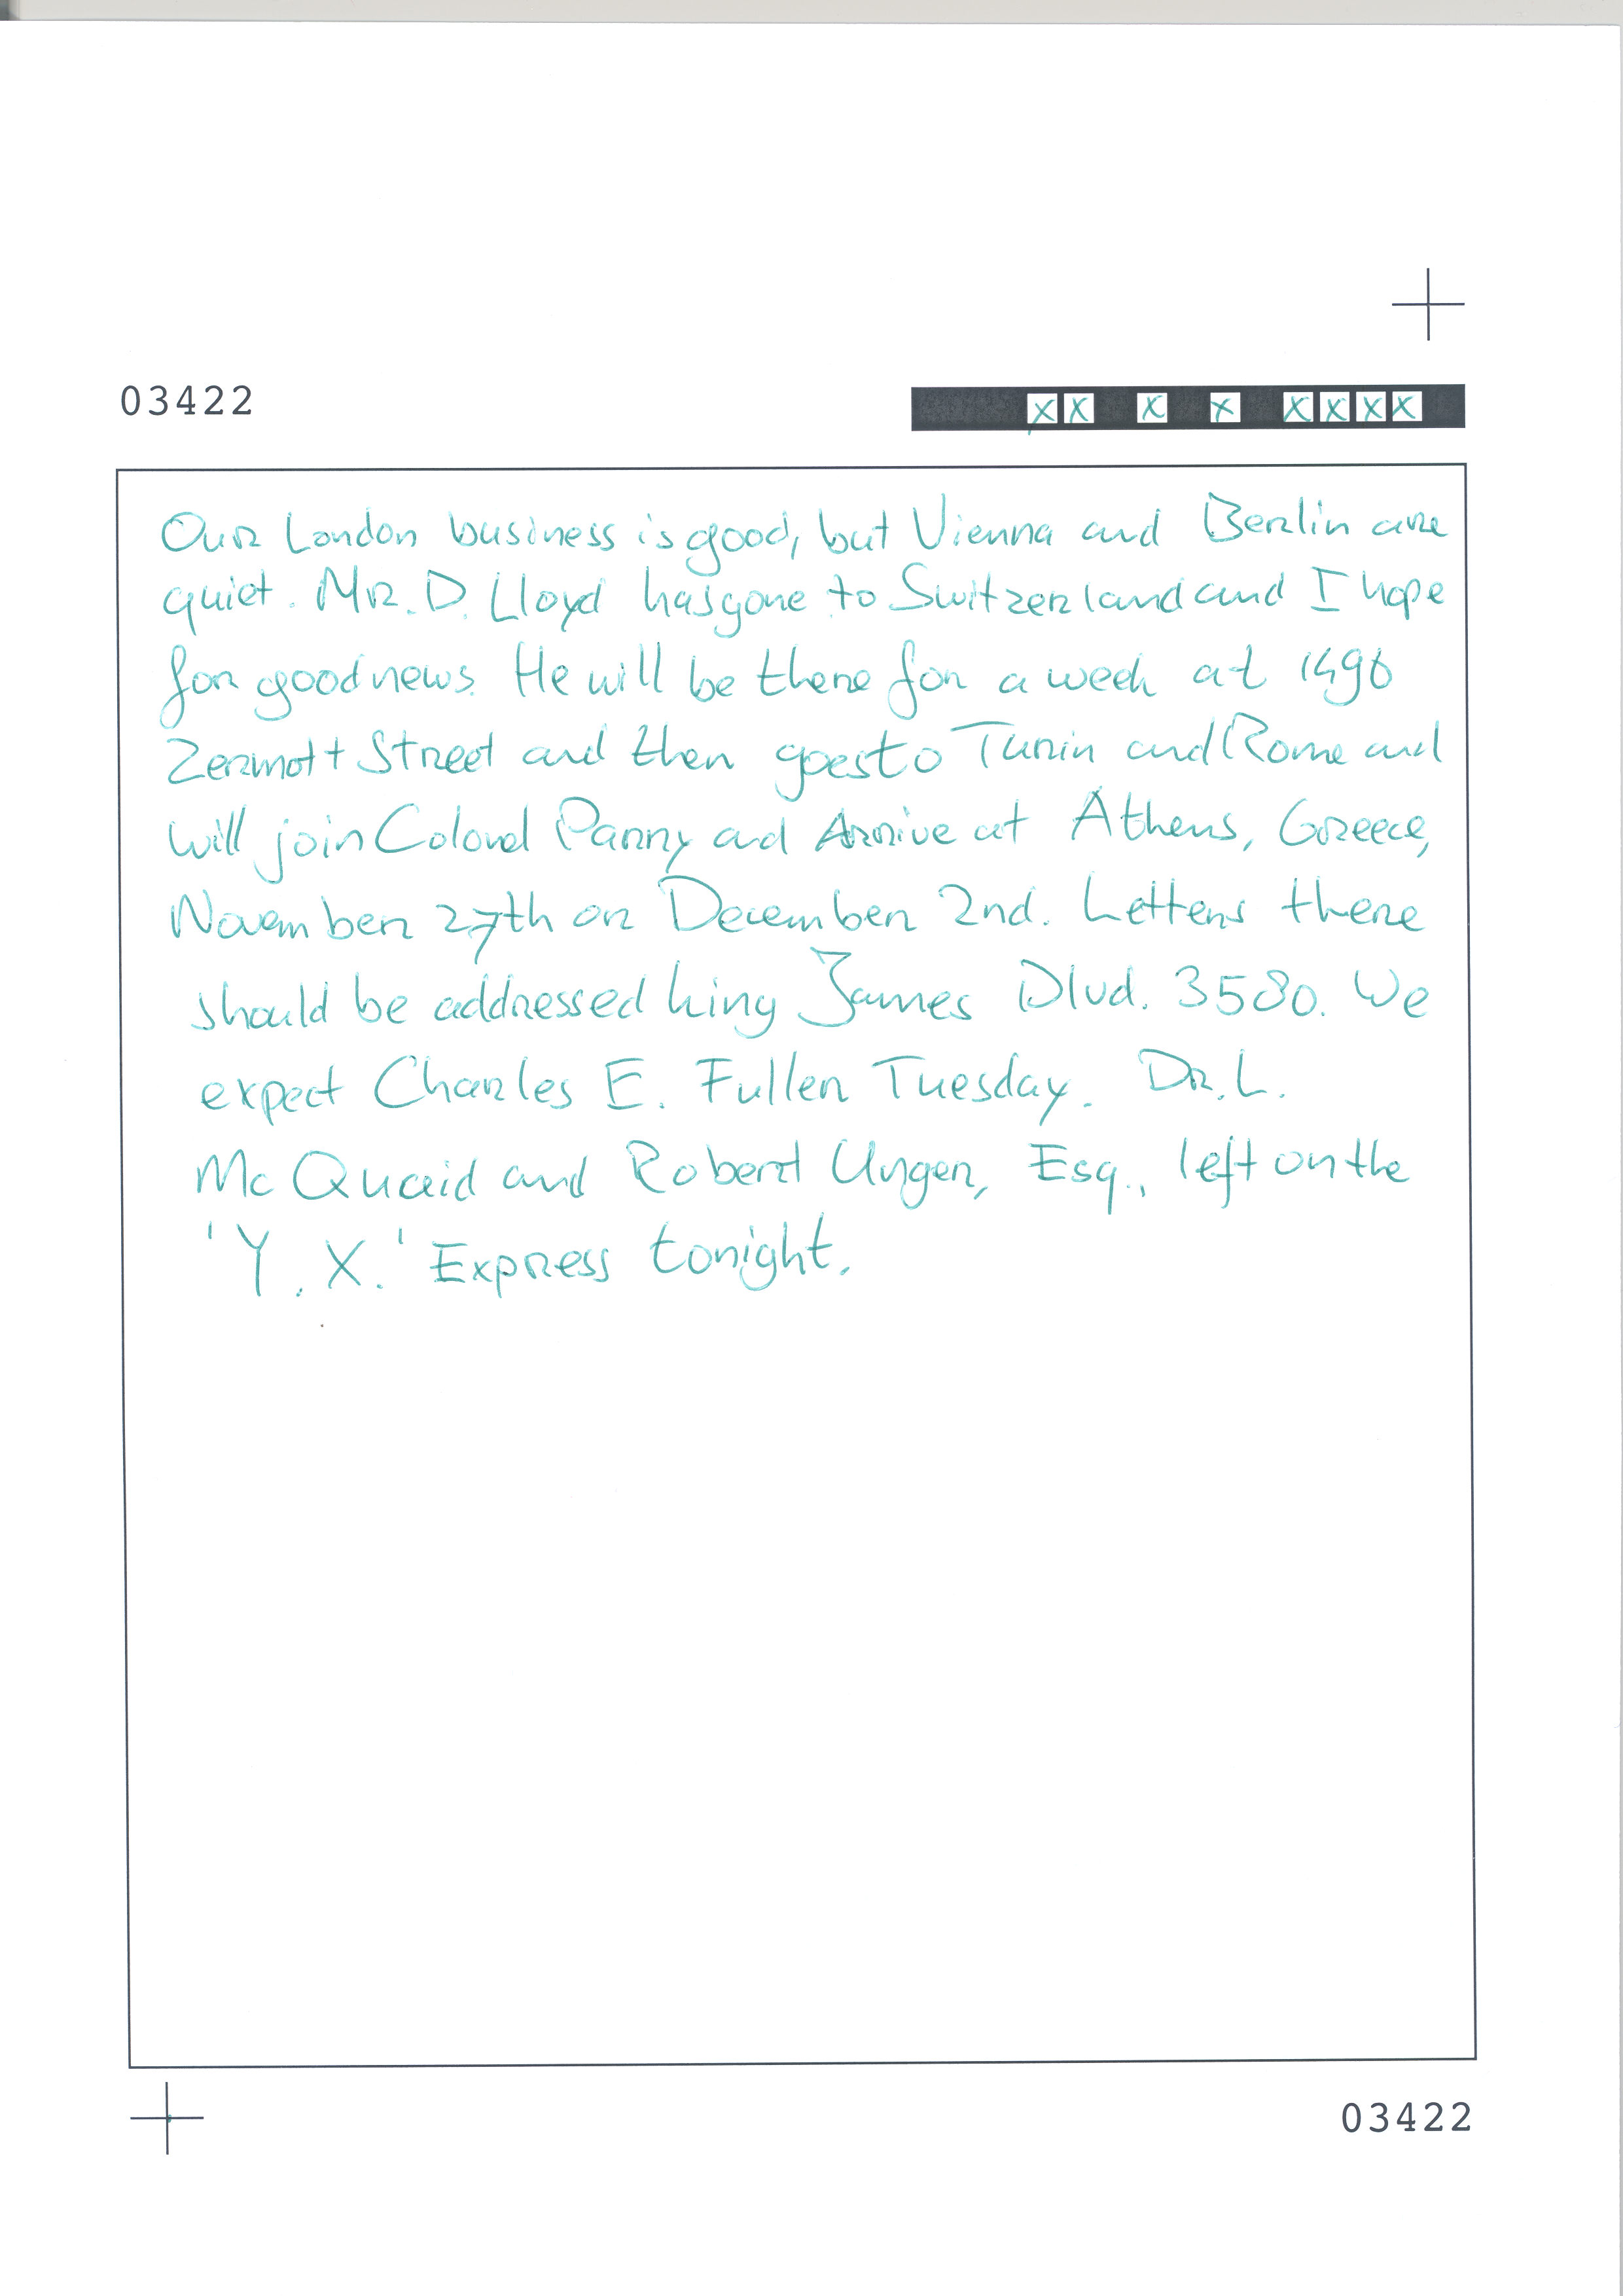 03422
X X X X X X X X
Our London business is good, but Vienna and Berlin are
quiet. Mr. D. Lloyd has gone to Switzerland and I hope
for good news. He will be there for a week at 1496
Zermott Street and then goes to Turin and Rome and
will join Colonel Parry and Arrive at Athens, Greece,
November 27th or December 2nd. Letters there
should be addressed King James Blvd. 3580. We
expect Charles E. Fuller Tuesday. Dr. L.
McQuaid and Robert Unger, Esq., left on the
'Y. X.' Express tonight.
03422